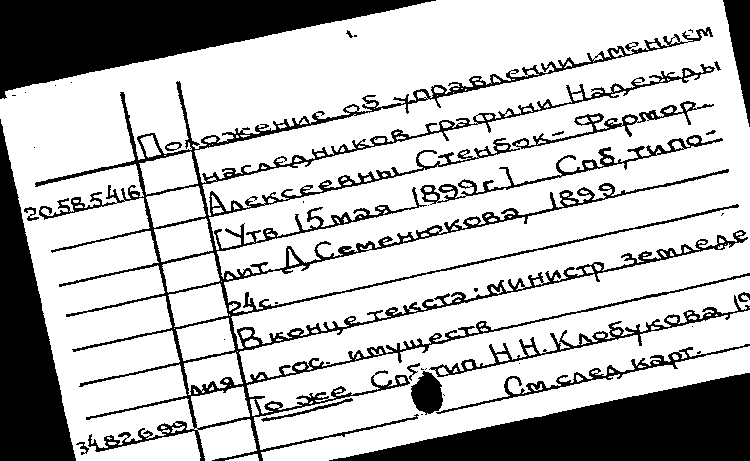 1.
Положение об управлении имением
наследников графини Надежды
20.58.5416 Алексеевны Стенбок-Фермор.
[Утв 15 мая 1899г.] Спб, типо-
лит. Д. Семенюкова, 1899.
24с.
В конце текста: министр земледе
лия и гос. имуществ
То же Спб тип. Н.Н. Клобукова, 19
34.82.6.99 См. след карт.